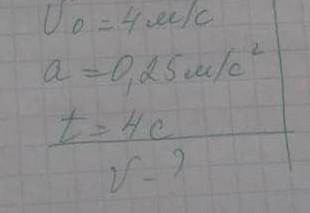 U₀ = 4 м/с
a = 0,25 м/с²
t = 4 с
V - ?